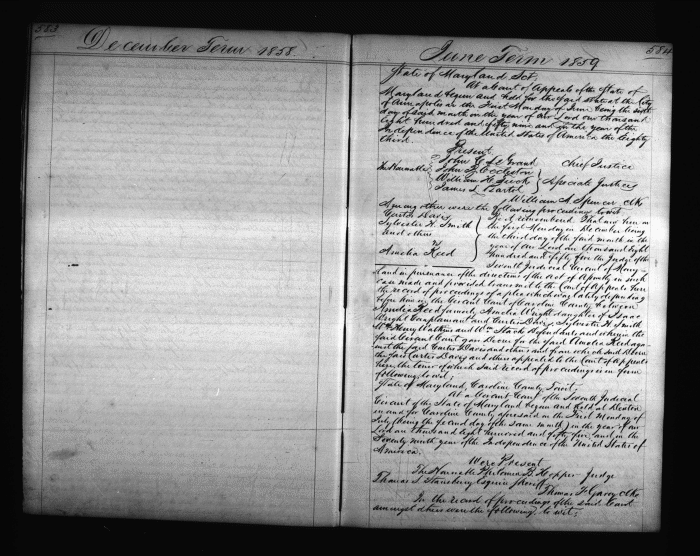 583
December Term 1858
584
June Term 1859
State of Maryland Sct.
At a Court of Appeals of the State of
Maryland begun and held for the said State at the City
of Annapolis on the First Monday of June being the sixth
day of said month in the year of our Lord one thousand
eight hundred and fifty nine and in the year of the
Independence of the United States of America the Eighty
third.
Present
The Honorable
John C. Le Grand Chief Justice
John B. Eccleston
William H. Tuck
James L. Bartol
Associate Justices
William A. Spencer Clk
Among other were the following proceeding to wit
Curtis Davis
Sylvester H. Smith
and others
vs
Amelia Reed
Be it remembered That on
the first Monday in December being
the third day of the said month in the
year of our Lord one thousand eight
hundred and fifty five the Judge of the
Seventh Judicial Circuit of Mary-
land in pursuance of the directions of the act of Assembly in such
case made and provided transmits to the Court of Appeals here
the record of proceedings of a plea which was lately depending
before him in the Circuit Court of Caroline County between
Amelia Reed formerly Amelia Wright daughter of Isaac
Wright Complainant and Curtis Davis, Sylvester H. Smith
Wm Henry Watkins and Wm Stack Defendants and wherein the
said Circuit Court gave Decree for the said Amelia Reed aga-
inst the said Curtis Davis and others and from which said Decree
the said Curtis Davis and others appealed to the Court of Appeals
here, the tenor of which said record of proceedings is in form
following, to wit;
State of Maryland, Caroline County To wit;
At a Circuit Court of the Seventh Judicial
Circuit of the State of Maryland begun and held at Denton
in and for Caroline County aforesaid on the First Monday of
July (being the second day of the same month) in the year of our
Lord one thousand eight hundred and fifty five, and in the
Seventy ninth year of the Independence of the United States of
America.
Were Present
The Honorable Philemon B. Hopper Judge
Thomas S Stansbury Esquire Sheriff
Thomas H Garey Clk
In the record of proceedings of the said Court
amongst others were the following, to wit;